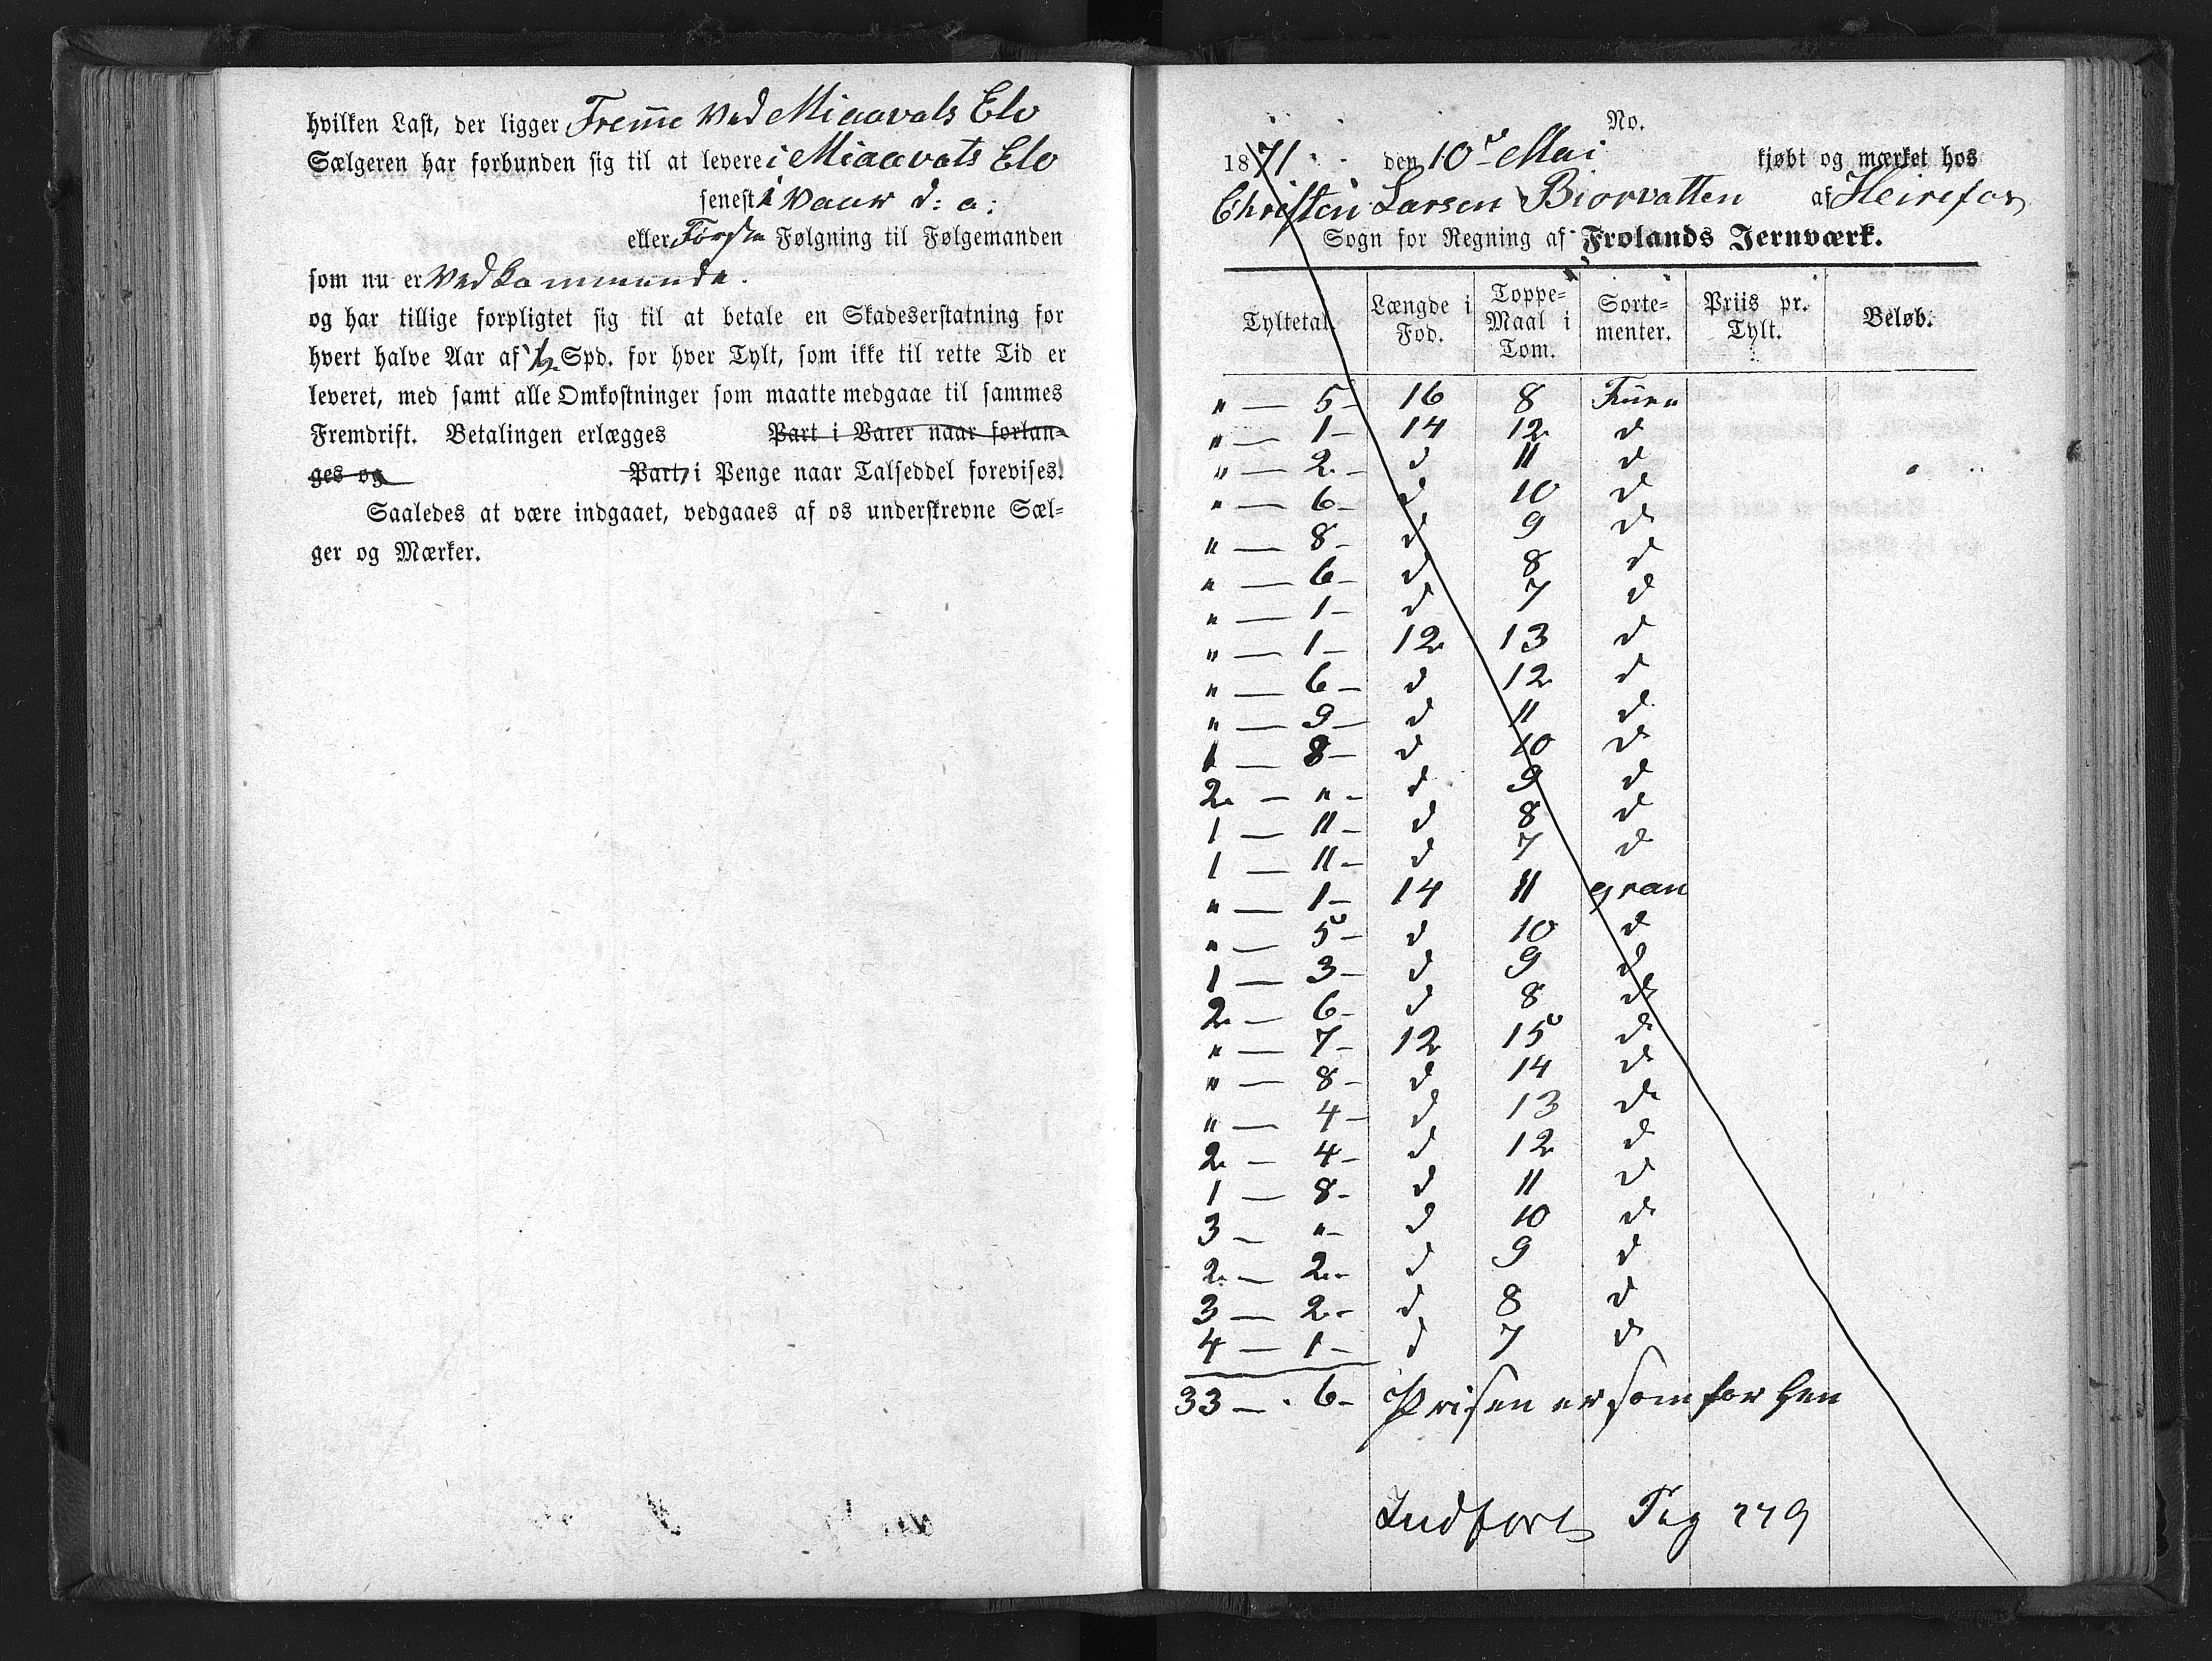 hvilken Last, der ligger Fremme ved Miaavats Elv
Sælgeren har forbunden sig til at levere i Miaavats Elv
senest i Vaar d: a:
eller Første Følgning til Følgemanden
som nu er Vedkommende.
og har tillige forpligtet sig til at betale en Skadeserstatning for
hvert halve Aar af 1/2 Spd. for hver Tylt, som ikke til rette Tid er
leveret, med samt alle Omkostninger som maatte medgaae til sammes
Fremdrift. Betalingen erlægges Part i Varer naar forlan-
ges og Part, i Penge naar Talseddel forevises.
Saaledes at være indgaaet, vedgaaes af os underskrevne Sæl-
ger og Mærker.
No.
1871 den 10d Mai kjøbt og mærket hos
Christen Larsen Biorvatten af Heirefos
Sogn for Regning af Frolands Jernværk.
Tyltetal. Længde i Fod. Toppe-Maal i Tom. Sorte-menter. Priis pr. Tylt. Beløb.
" — 5 — 16 8 Furu
" — 1 — 14 12 d
" — 2 — d 11 d
" — 6 — d 10 d
" — 8 — d 9 d
" — 6 — d 8 d
" — 1 — d 7 d
" — 1 — 12 13 d
" — 6 — d 12 d
" — 9 — d 11 d
1 — 8 — d 10 d
2 — " — d 9 d
1 — 11 — d 8 d
1 — 11 — d 7 d
" — 1 — 14 11 gran
" — 5 — d 10 d
1 — 3 — d 9 d
2 — 6 — d 8 d
" — 7 — 12 15 d
" — 8 — d 14 d
" — 4 — d 13 d
2 — 4 — d 12 d
1 — 8 — d 11 d
3 — " — d 10 d
2 — 2 — d 9 d
3 — 2 — d 8 d
4 — 1 — d 7 d
33 — 6 — Prisen er som for hen
Indført Pag 279